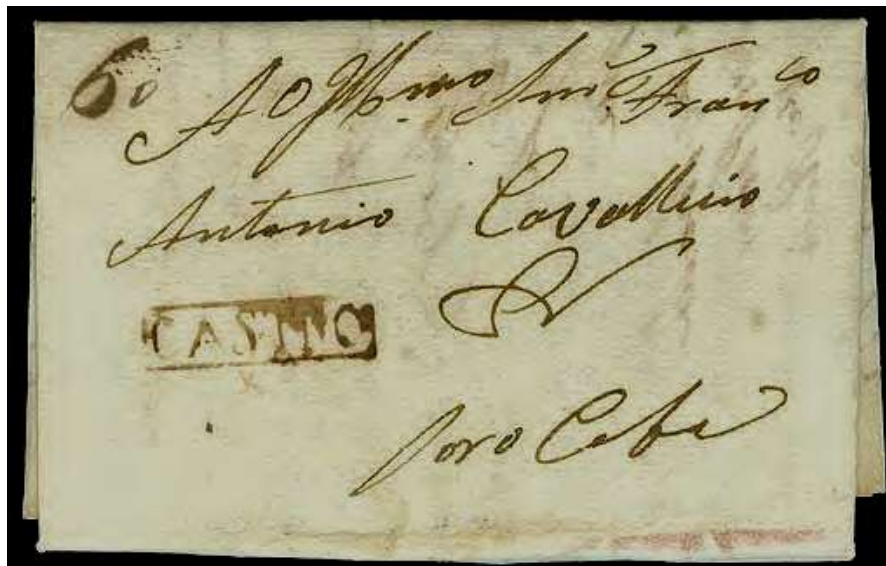 60
A O Illmo Snr Franco
Antonio Cavalheiro
CASTRO
Soro Caba